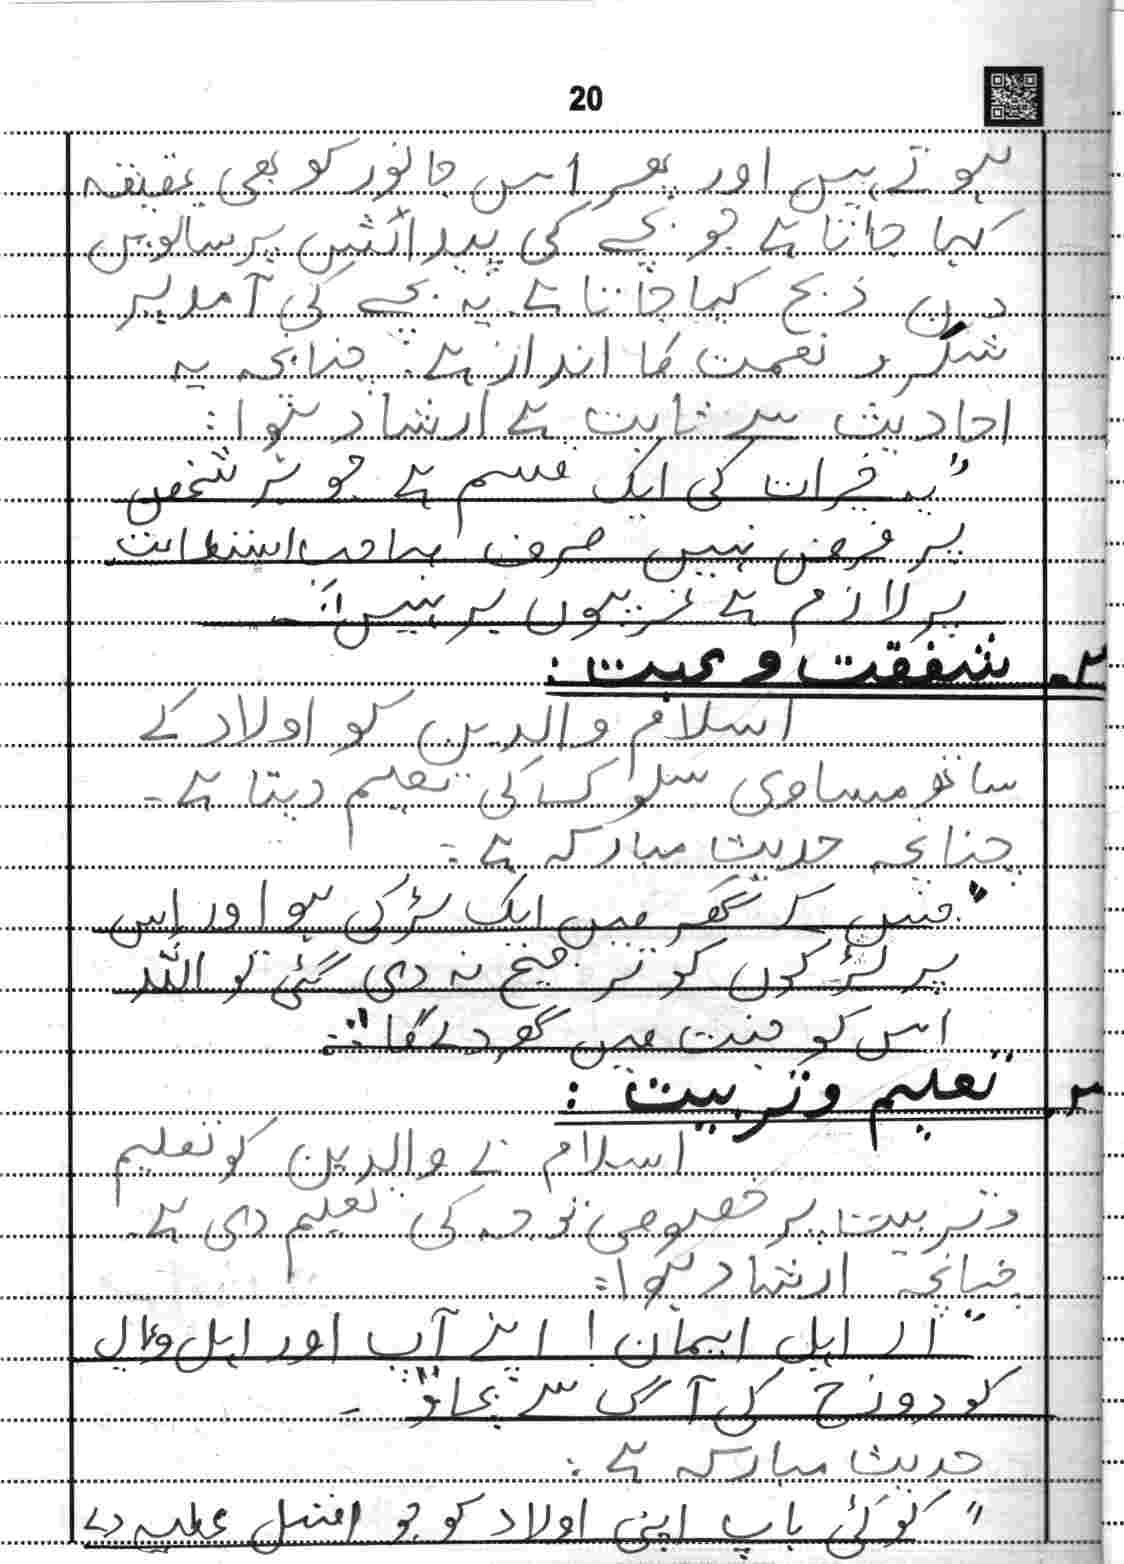 20
ہوتے ہیں اور پھر اس جانور کو بھی عقیقہ
کہا جاتا ہے جو بچے کی پیدائش پر ساتویں
دن ذبح کیا جاتا ہے۔ یہ بچے کی آمد پر
شکر و نعمت کا انداز ہے۔ چنانچہ یہ
احادیث سے ثابت ہے ارشاد ہوا:
"یہ خیرات کی ایک قسم ہے جو ہر شخص
پر فرض نہیں صرف صاحب استطاعت
پر لازم ہے غریبوں پر نہیں"۔
۲۔ شفقت و محبت:
اسلام والدین کو اولاد کے
ساتھ مساوی سلوک کی تعلیم دیتا ہے۔
چنانچہ حدیث مبارکہ ہے:
"جس کے گھر میں ایک لڑکی ہو اور اس
پر لڑکوں کو ترجیح نہ دی گئی تو اللہ
اس کو جنت میں گھر دے گا"۔
۳۔ تعلیم و تربیت:
اسلام نے والدین کو تعلیم
و تربیت پر خصوصی توجہ کی تعلیم دی ہے۔
چنانچہ ارشاد ہوا:
"اے اہل ایمان! اپنے آپ اور اہل و عیال
کو دوزخ کی آگ سے بچاؤ"۔
حدیث مبارکہ ہے:
"کوئی باپ اپنی اولاد کو جو افضل عطیہ دے